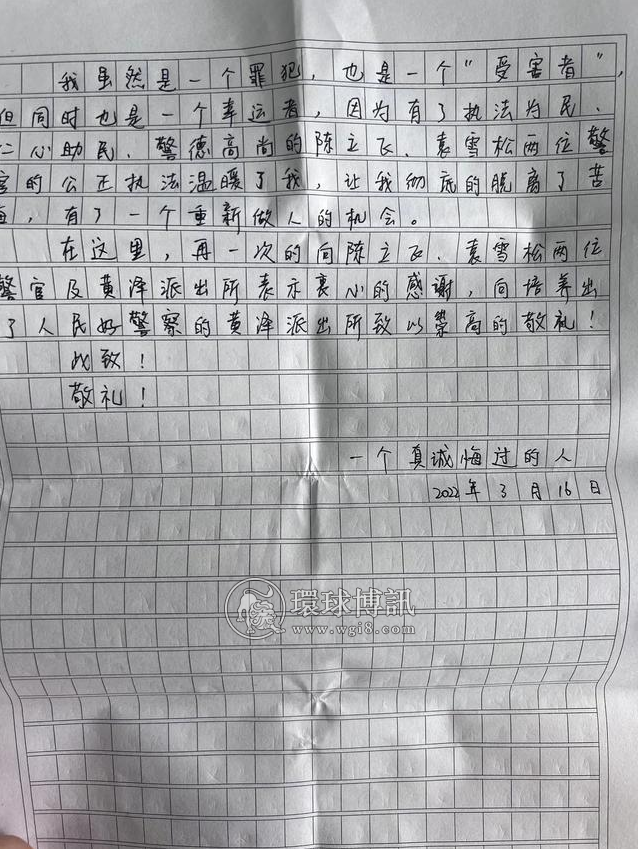 我虽然是一个罪犯，也是一个“受害者”，
但同时也是一个幸运者，因为有了执法为民、
仁心助民、警德高尚的陈立飞、袁雪松两位警
官的公正执法温暖了我，让我彻底的脱离了苦
海，有了一个重新做人的机会。
在这里，再一次的向陈立飞、袁雪松两位
警官及黄泽派出所表示衷心的感谢，向培养出
了人民好警察的黄泽派出所致以崇高的敬礼！
此致！
敬礼！
一个真诚悔过的人
2022年3月16日
環球博訊
www.wgi8.com